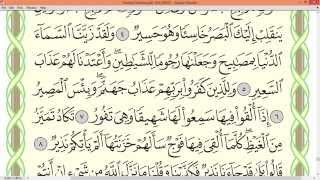 يَنقَلِبْ إِلَيْكَ الْبَصَرُ خَاسِئًا وَهُوَ حَسِيرٌ ٤ وَلَقَدْ زَيَّنَّا السَّمَاءَ
الدُّنْيَا بِمَصَابِيحَ وَجَعَلْنَاهَا رُجُومًا لِلشَّيَاطِينِ وَأَعْتَدْنَا لَهُمْ عَذَابَ
السَّعِيرِ ٥ وَلِلَّذِينَ كَفَرُوا بِرَبِّهِمْ عَذَابُ جَهَنَّمَ وَبِئْسَ الْمَصِيرُ
٦ إِذَا أُلْقُوا فِيهَا سَمِعُوا لَهَا شَهِيقًا وَهِيَ تَفُورُ ٧ تَكَادُ تَمَيَّزُ
مِنَ الْغَيْظِ كُلَّمَا أُلْقِيَ فِيهَا فَوْجٌ سَأَلَهُمْ خَزَنَتُهَا أَلَمْ يَأْتِكُمْ نَذِيرٌ
٨ قَالُوا بَلَىٰ قَدْ جَاءَنَا نَذِيرٌ فَكَذَّبْنَا وَقُلْنَا مَا نَزَّلَ اللَّهُ مِن شَيْءٍ إِنْ أَنتُمْ